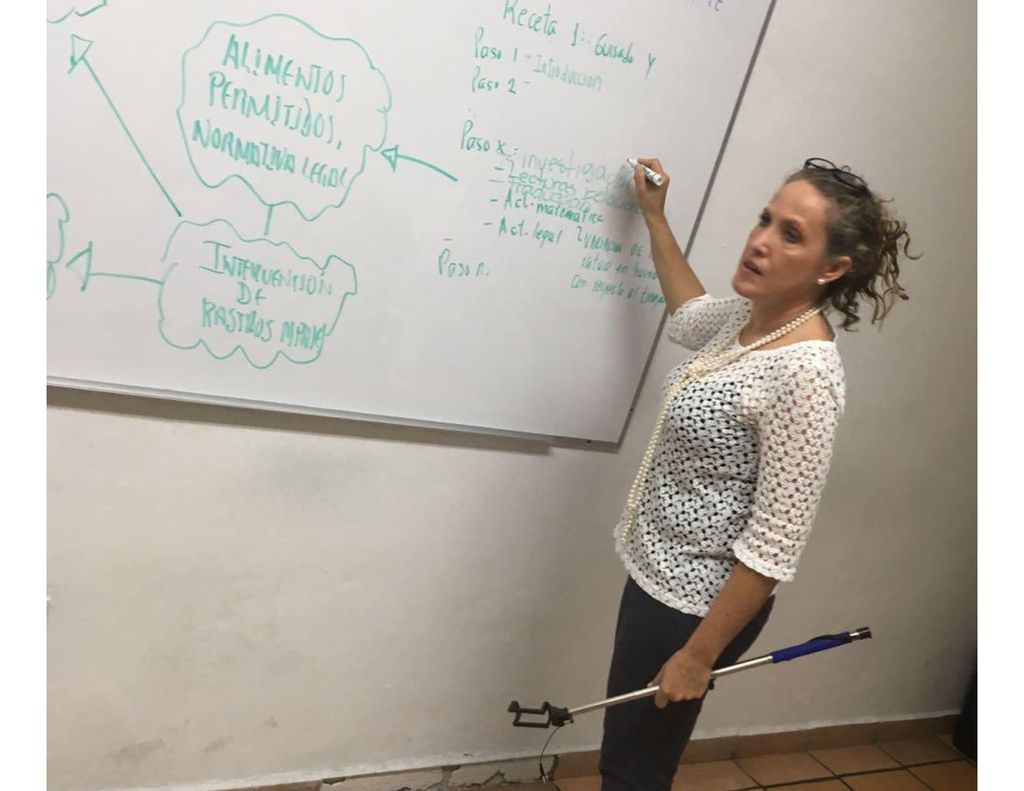 ALIMENTOS
PERMITIDOS,
NORMATIVA LEGAL
INTERVENCIÓN
DE
RASTROS
Receta 1: Guisado y
Paso 1 - Introducción
Paso 2 -
Paso x:
- investigación
- Lecturas
- Traducción
- Act. matemática
- Act. legal
con respecto al
Paso n.